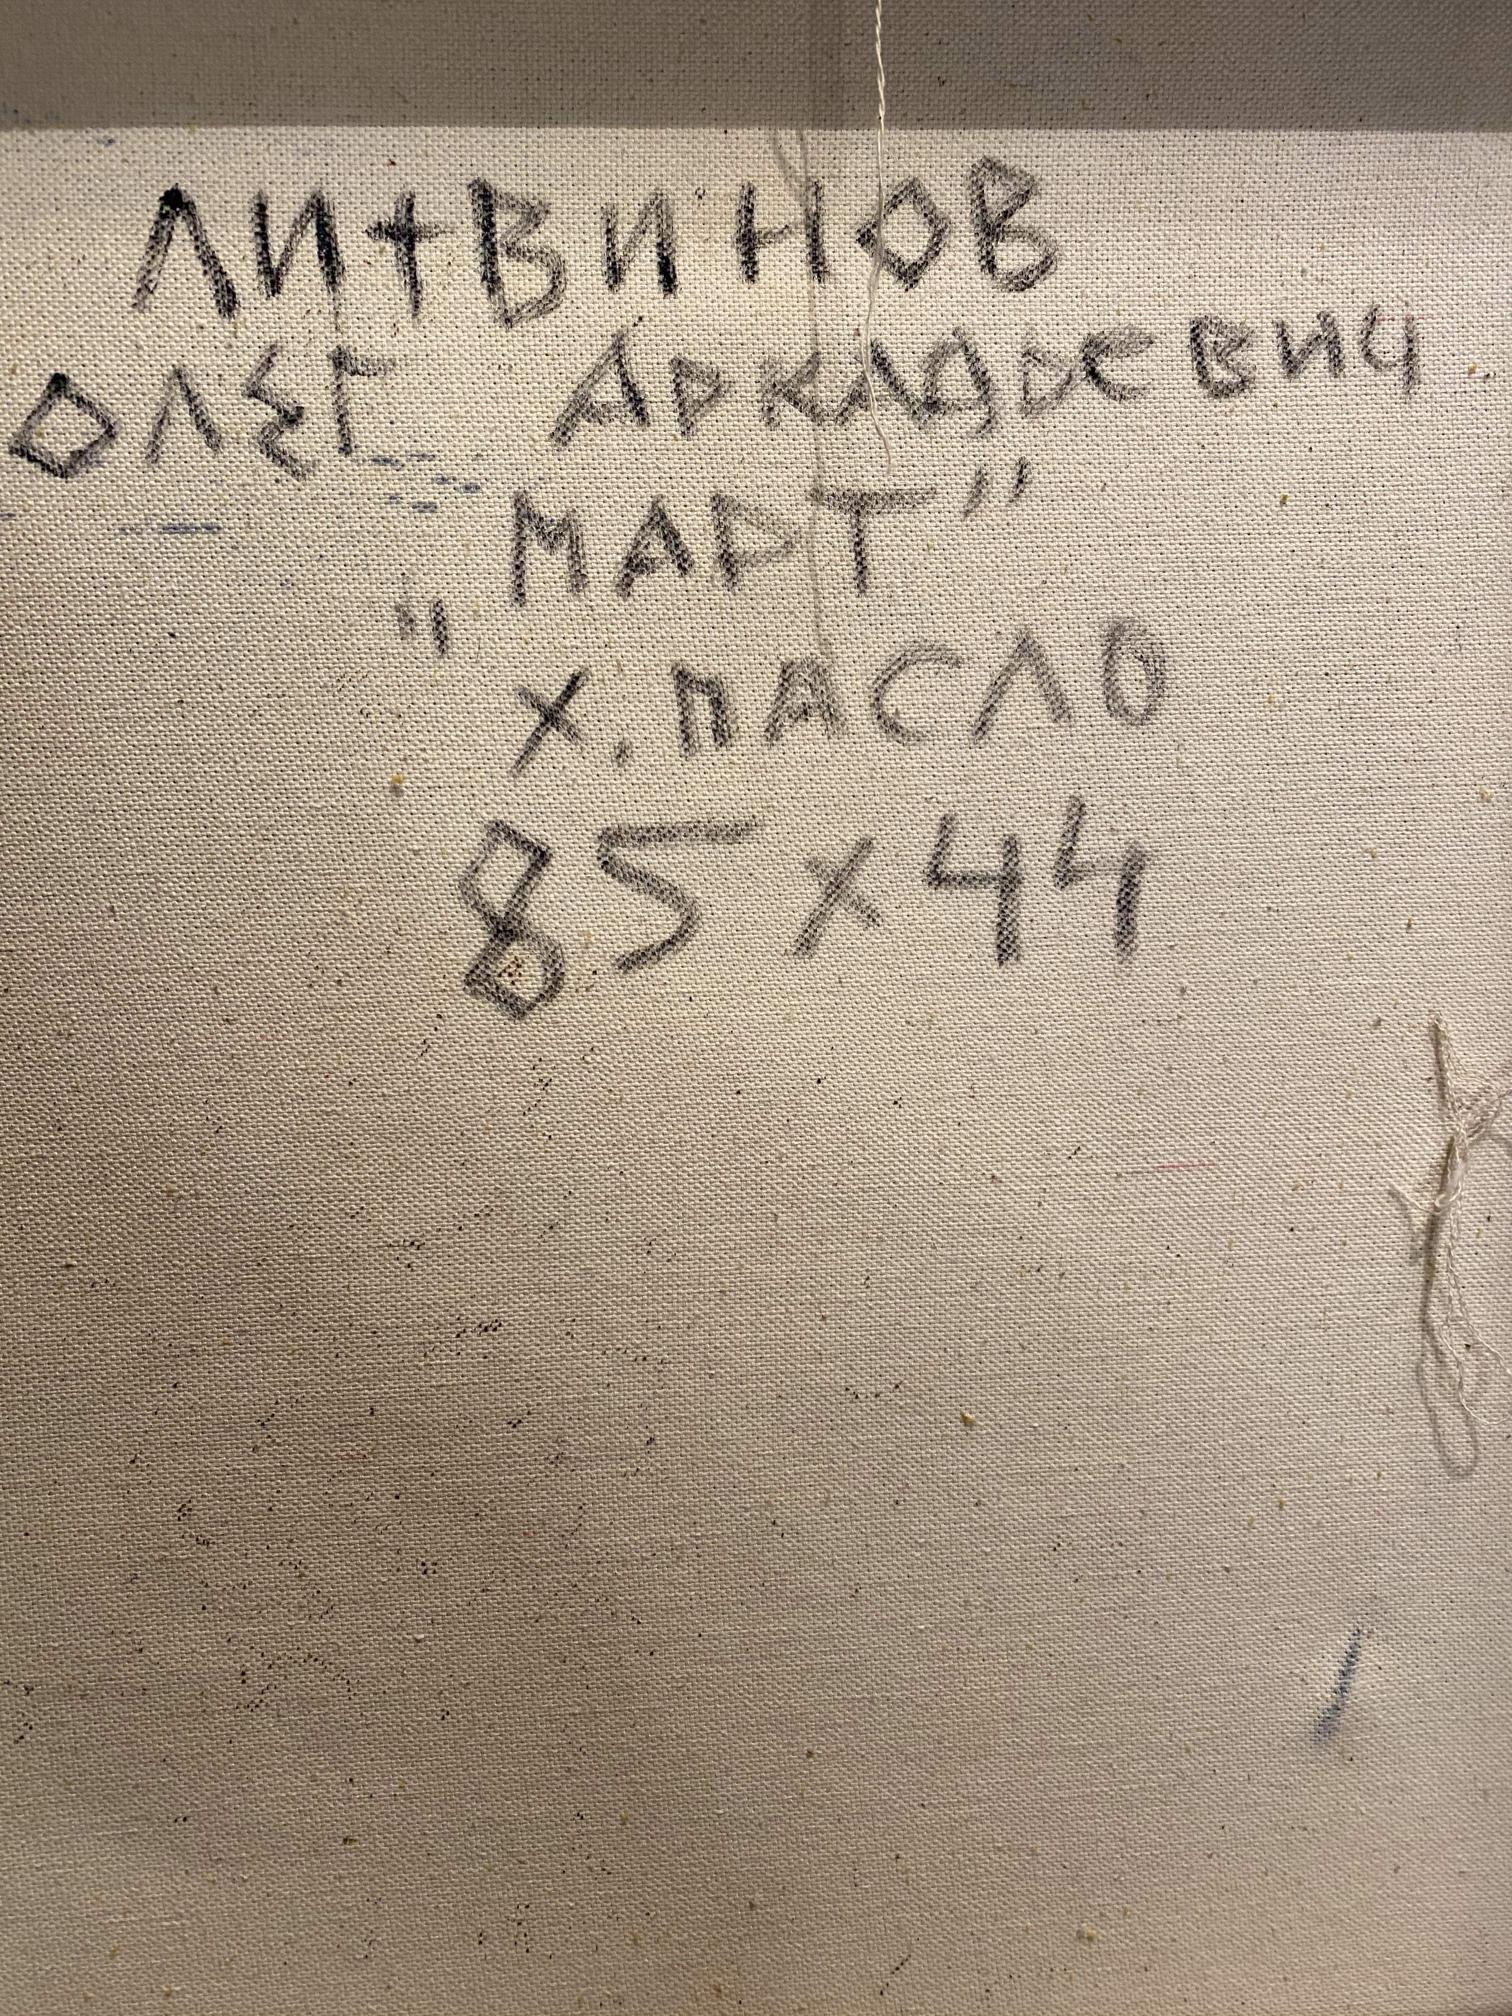 ЛИТВИНОВ
ОЛЕГ Аркадьевич
„МАРТ”
Х. МАСЛО
85х44